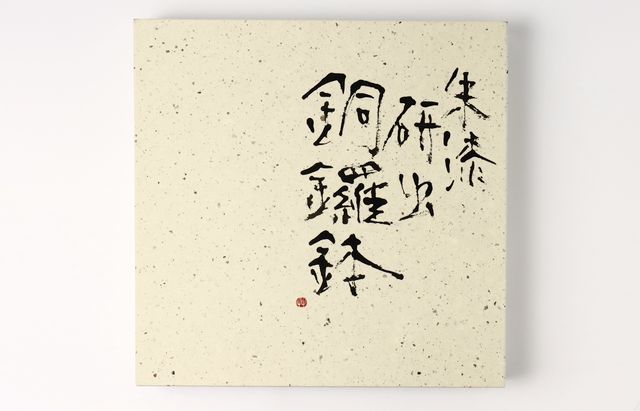 朱漆
研出
銅鑼鉢